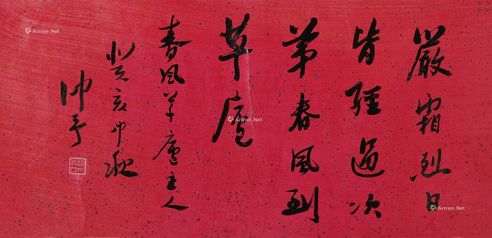 嚴霜烈日
皆經過次
第春風到
草廬
春風草廬主人
癸亥中秋
帥予
Artron.Net
Artron.Net
Artron.Net